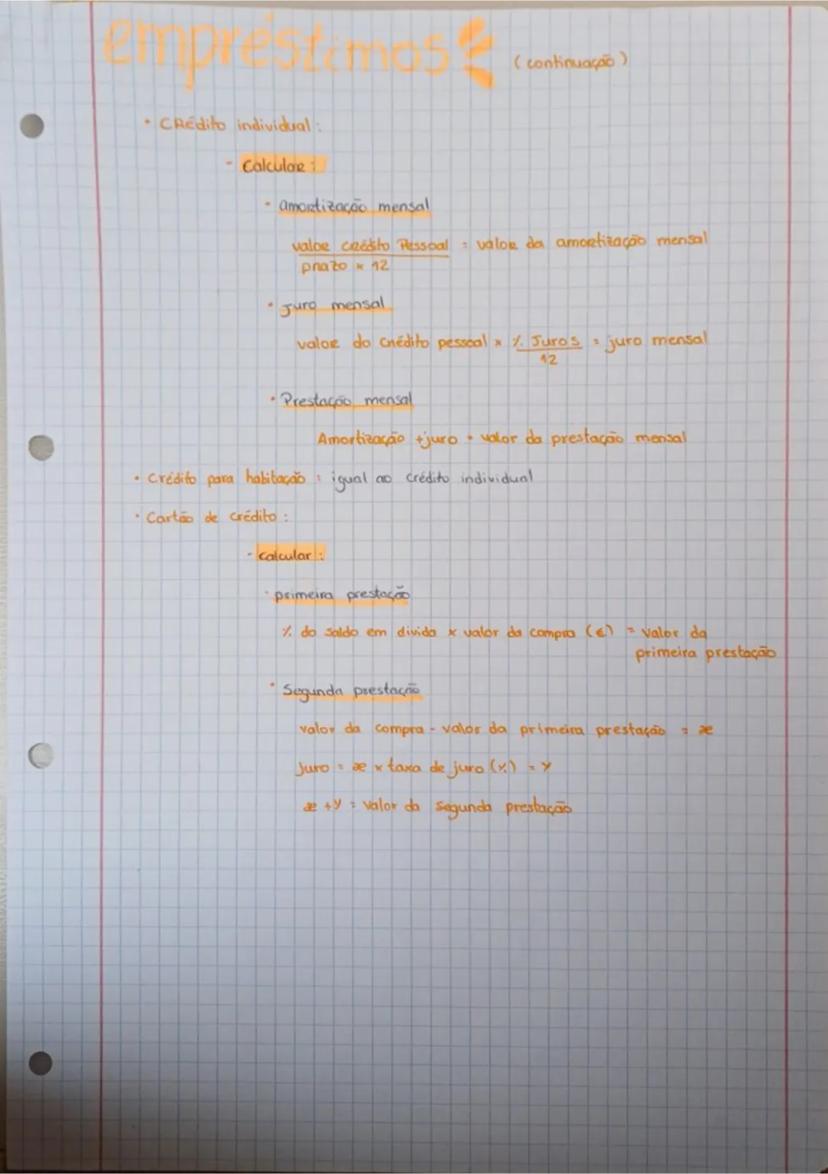 empréstimos (continuação)
• Crédito individual:
- Calcular:
• amortização mensal
valor crédito Pessoal = valor da amortização mensal
prazo × 12
• Juro mensal
valor do crédito pessoal × % Juros = juro mensal
12
• Prestação mensal
Amortização + juro = valor da prestação mensal
• Crédito para habitação : igual ao crédito individual
• Cartão de crédito :
- calcular :
• primeira prestação
% do saldo em divida × valor da compra (€) = valor da
primeira prestação
• Segunda prestação
valor da compra - valor da primeira prestação = x
Juro = x × taxa de juro (%) = y
x + y = valor da segunda prestação